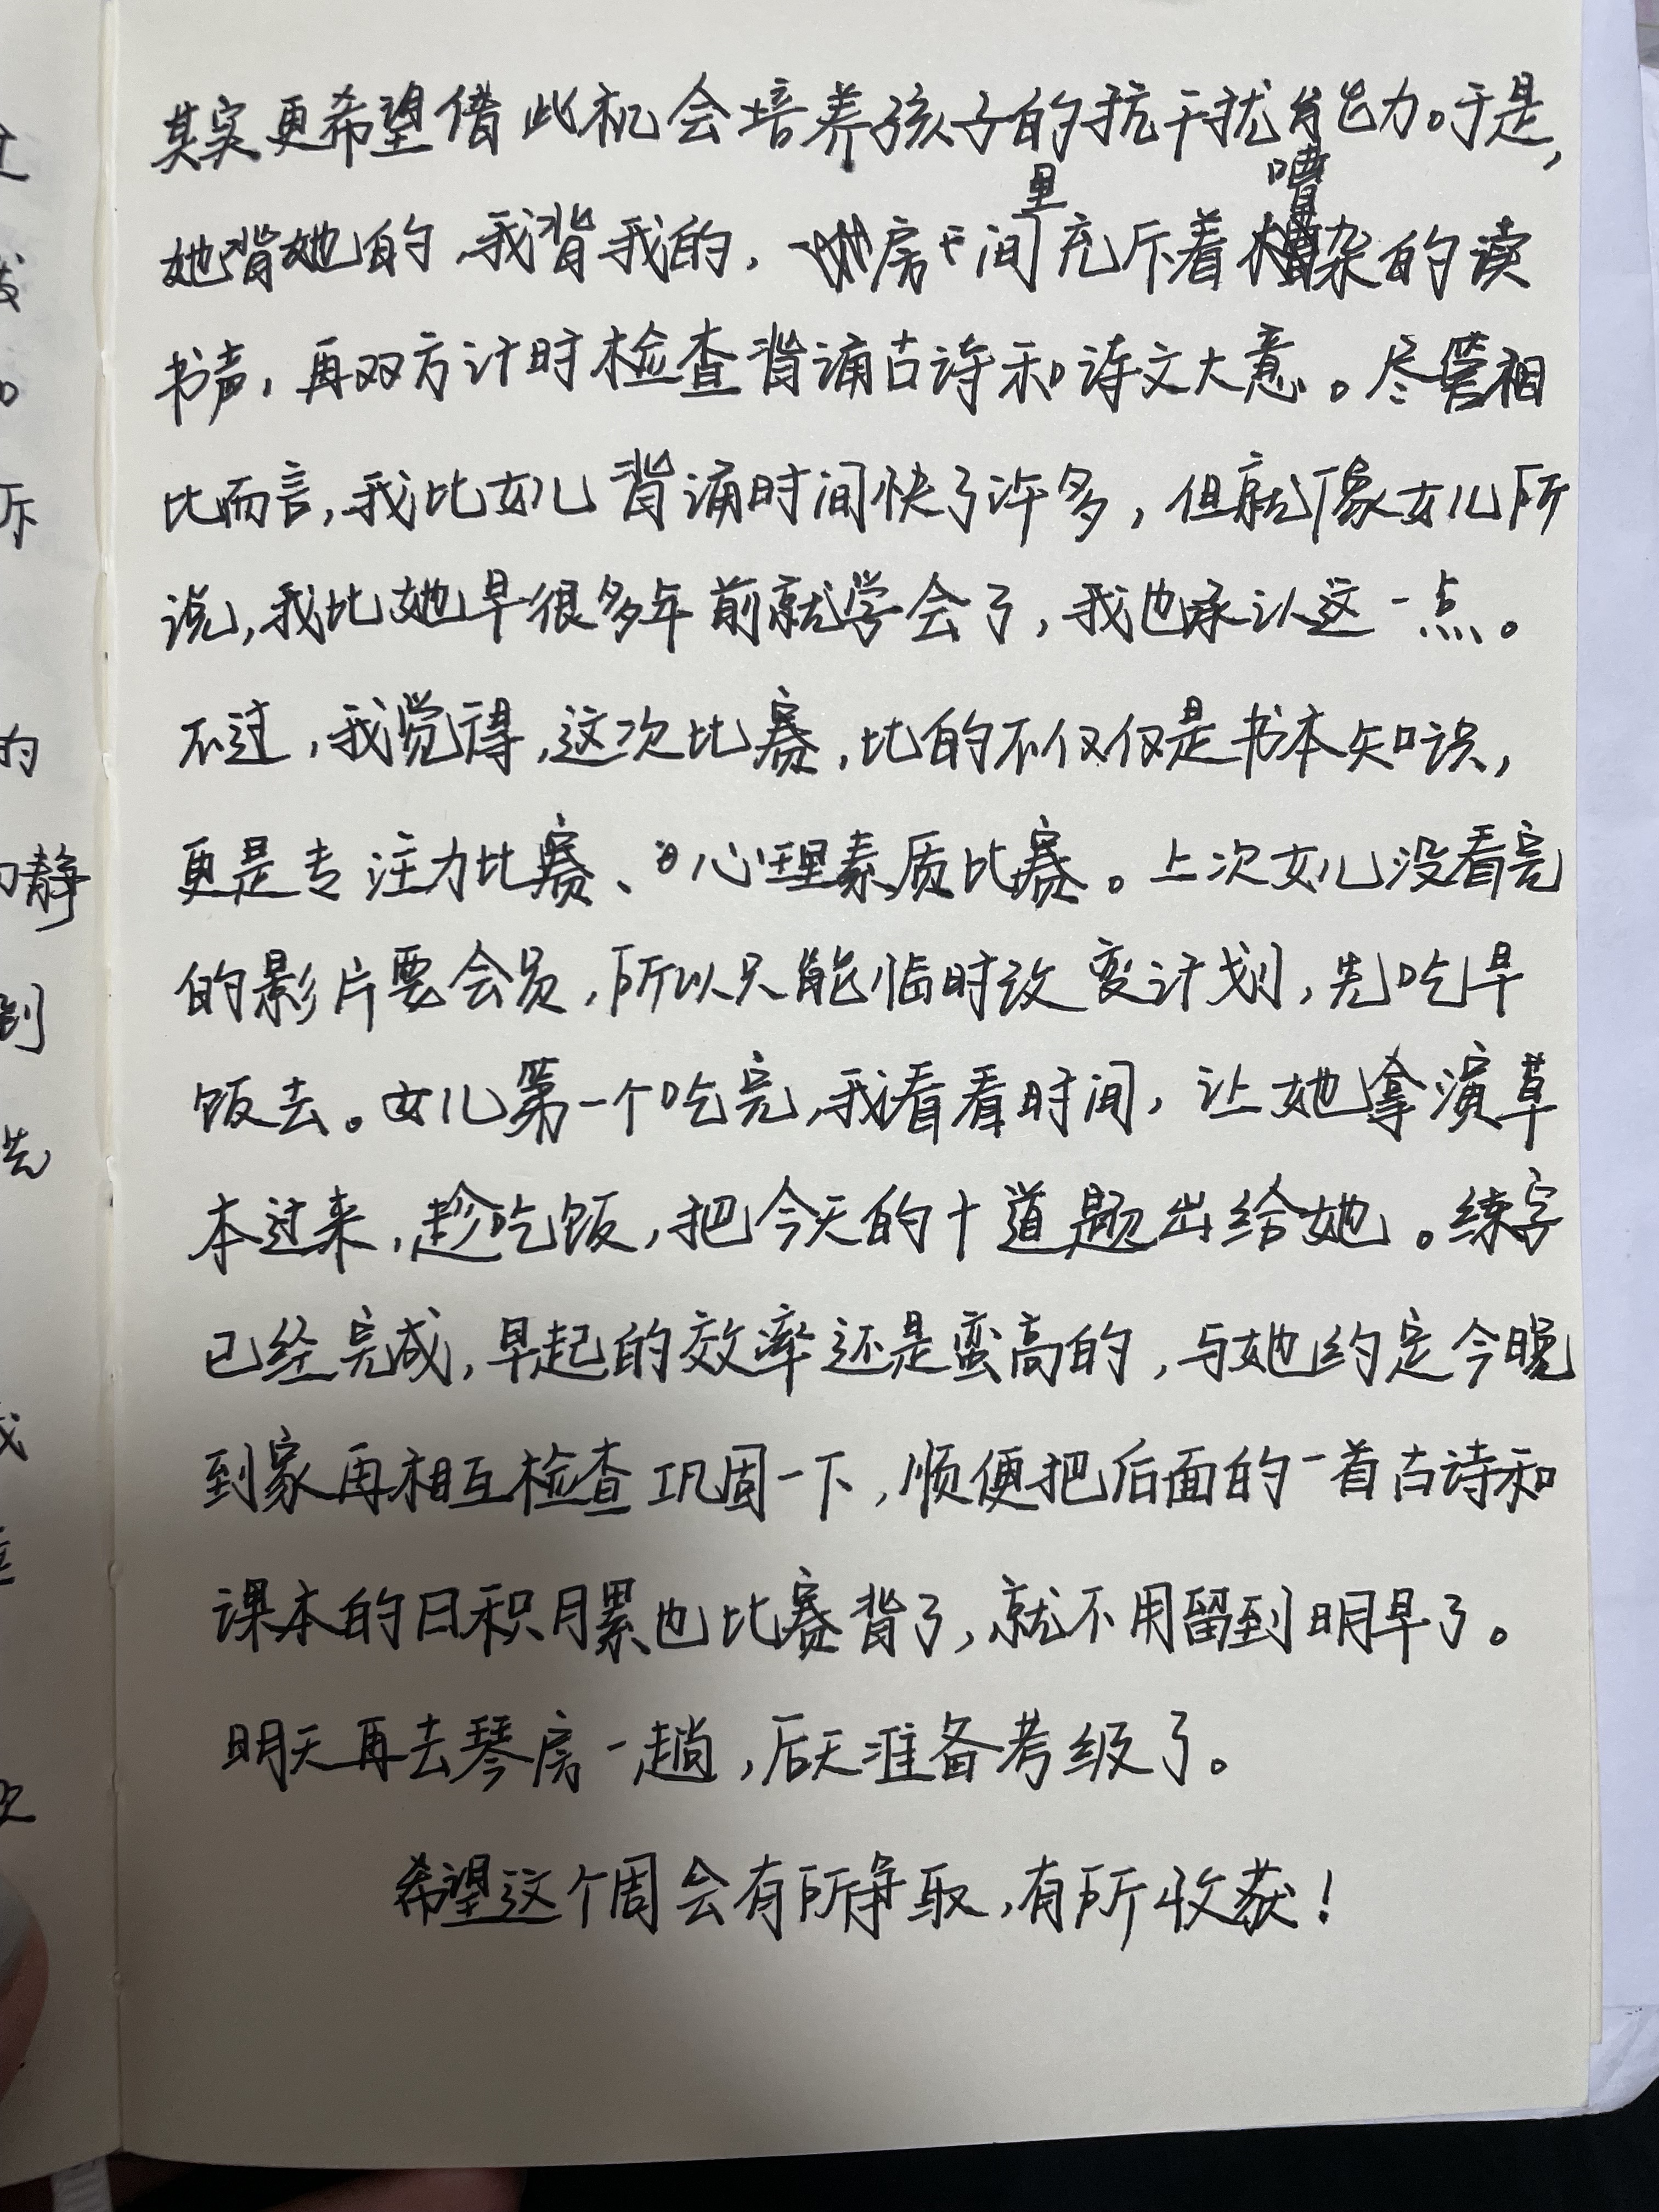 其实更希望借此机会培养孩子的抗干扰能力。于是,
她背她的,我背我的,房间里充斥着嘈杂的读
书声,再双方计时检查背诵古诗和诗文大意。尽管相
比而言,我比女儿背诵时间快了许多,但就像女儿所
说,我比她早很多年前就学会了,我也承认这一点。
不过,我觉得,这次比赛,比的不仅仅是书本知识,
更是专注力比赛、心理素质比赛。上次女儿没看完
的影片要会员,所以只能临时改变计划,先吃早
饭去。女儿第一个吃完,我看看时间,让她拿演草
本过来,趁吃饭,把今天的十道题出给她。练字
已经完成,早起的效率还是蛮高的,与她约定今晚
到家再相互检查巩固一下,顺便把后面的一首古诗和
课本的日积月累也比赛背了,就不用留到明早了。
明天再去琴房一趟,后天准备考级了。
希望这个周会有所争取,有所收获!